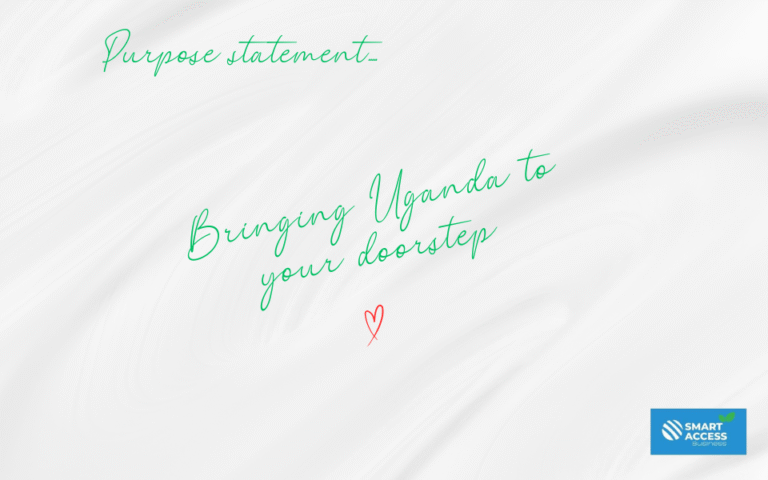 Purpose statement_
Bringing Uganda to
your doorstep
SMART
ACCESS
BUSINESS